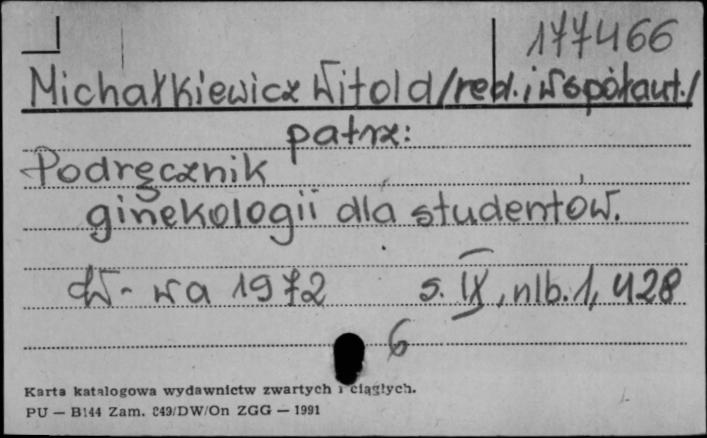 177466
Michałkiewicz Witold /red. i współaut./
patrz:
Podręcznik
ginekologii dla studentów.
W-wa 1972 s. IX, nlb. 1, 428
6
Karta katalogowa wydawnictw zwartych i ciągłych.
PU — B144 Zam. 249/DW/On ZGG — 1991